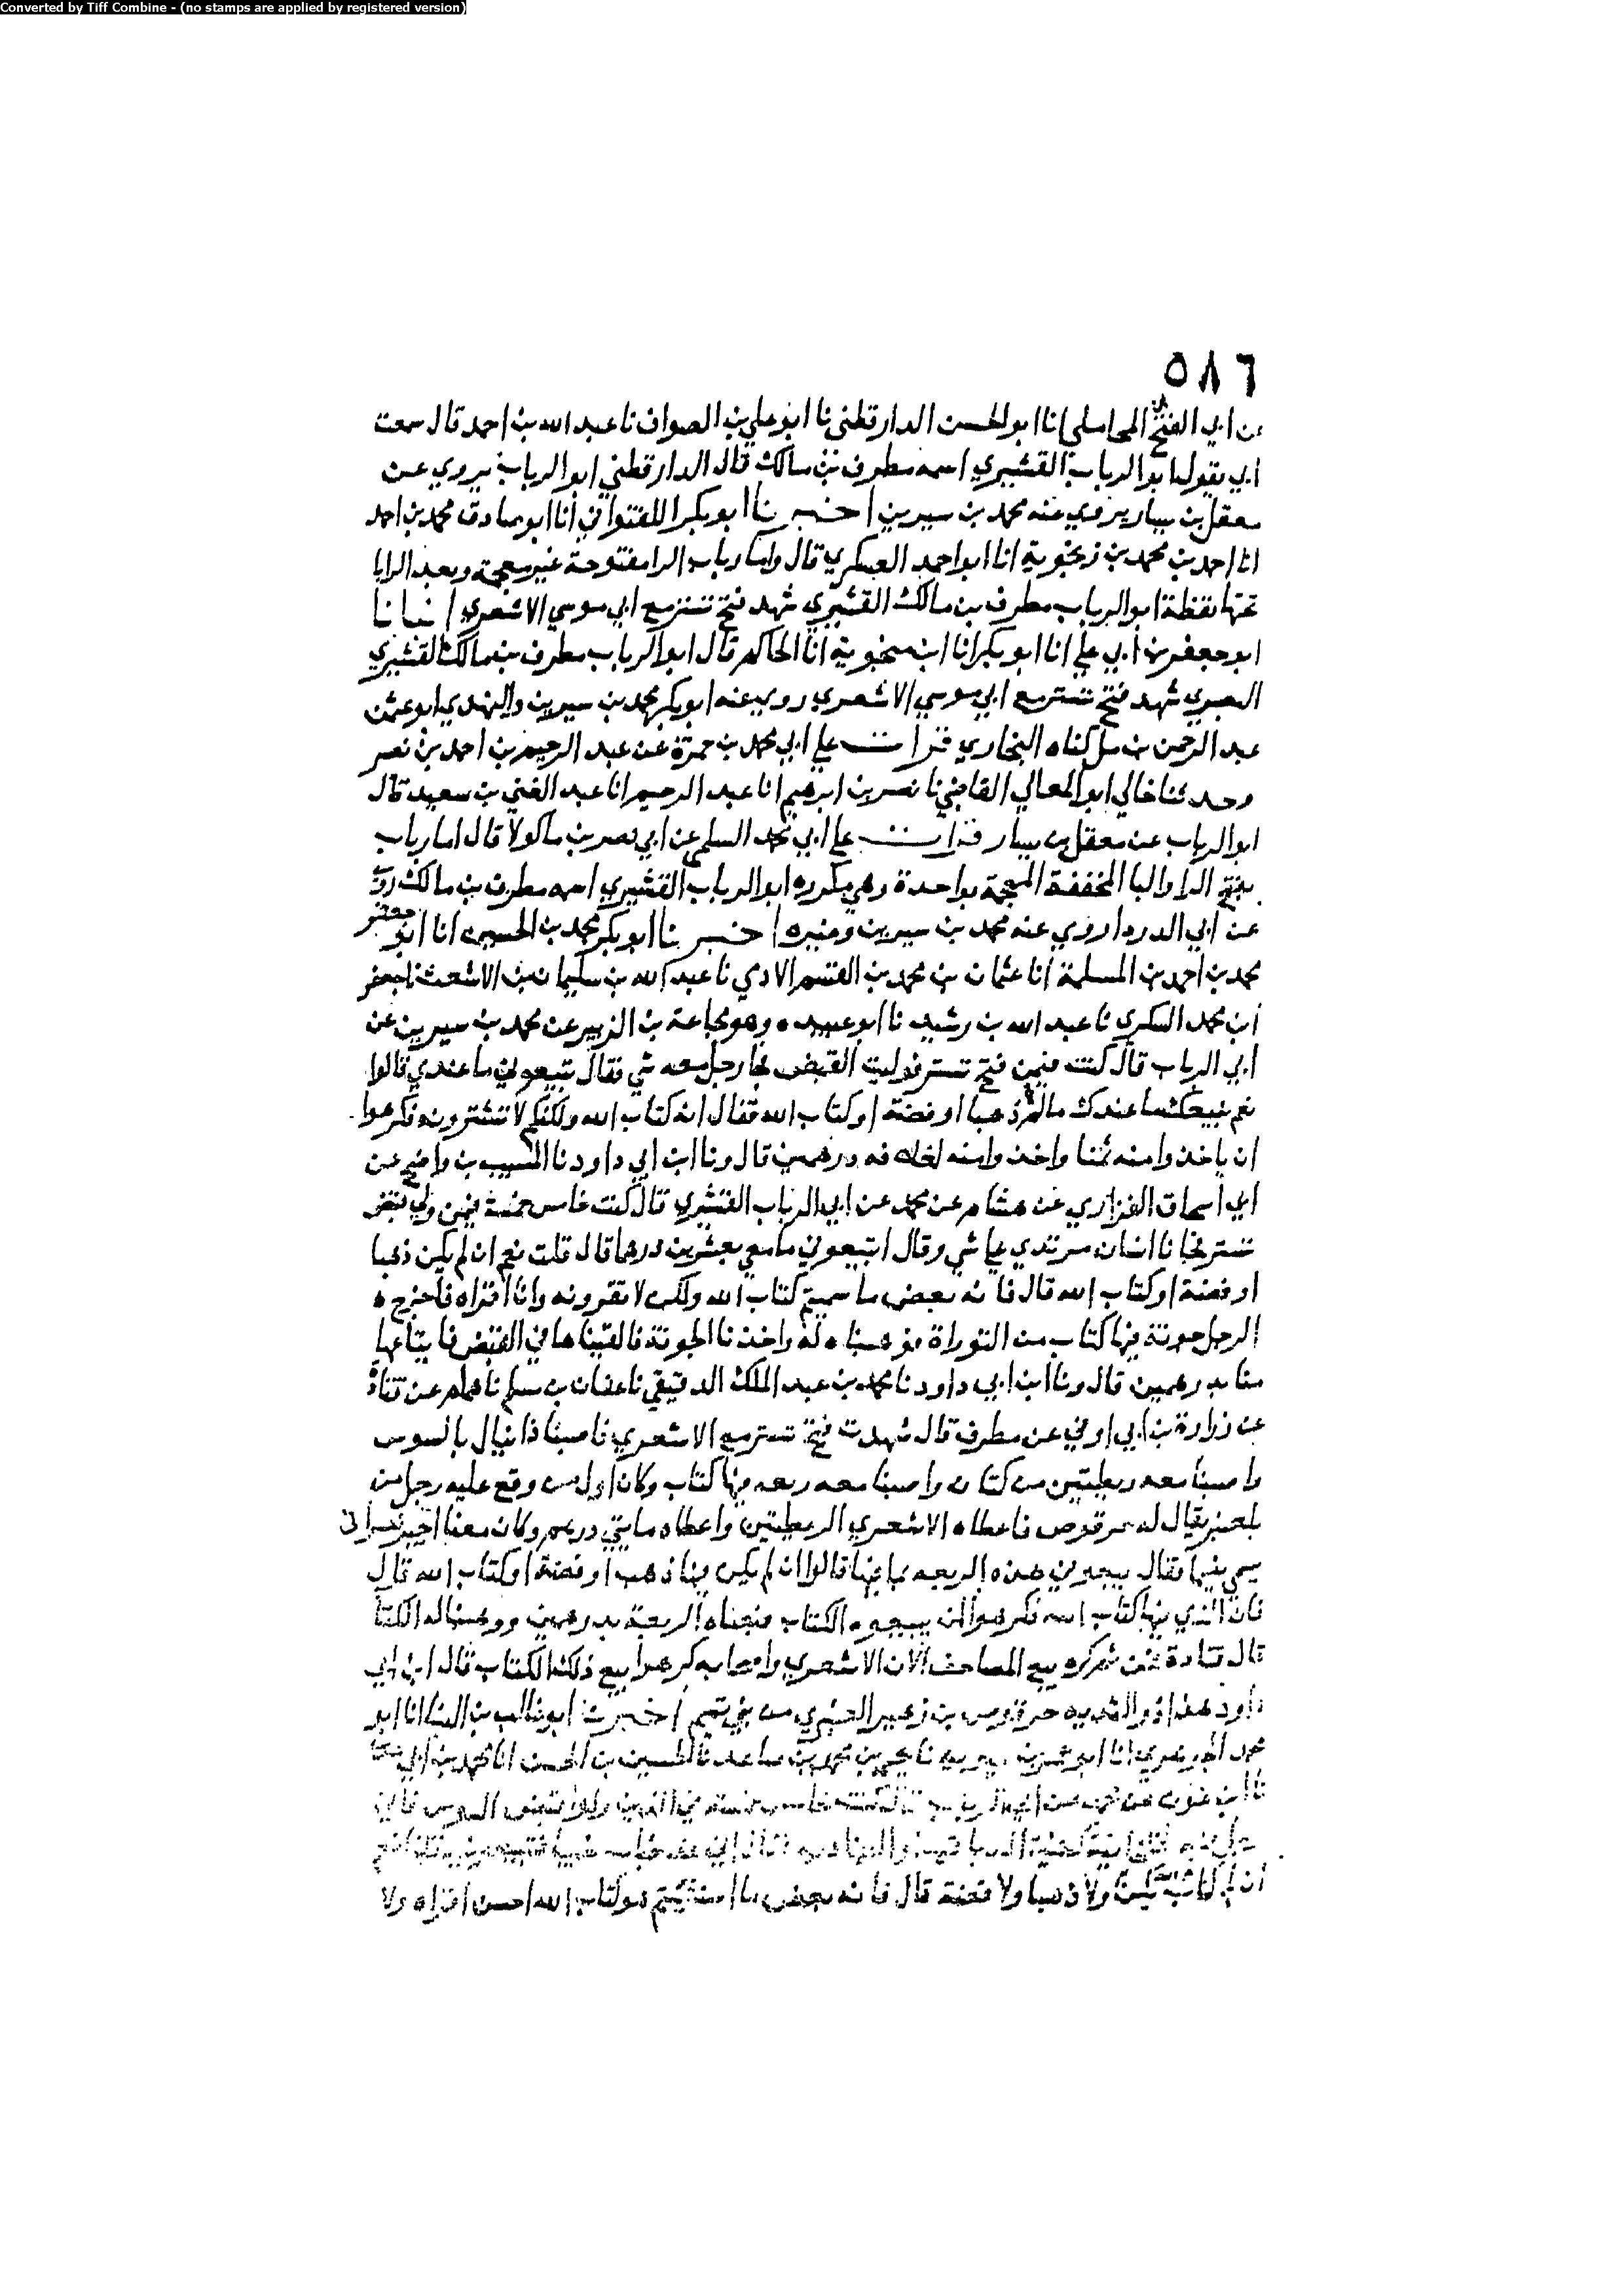 Converted by Tiff Combine - (no stamps are applied by registered version)
٥٨٦
عن ابي الفتح بن المحاملي انا ابو الحسن الدارقطني نا ابو علي بن الصواف نا عبد الله بن احمد قال سمعت
ابي يقول ابو الرباب القشيري اسمه مطرف بن مالك قال الدارقطني ابو الرباب يروي عن
معقل بن يسار يروي عنه محمد بن سيرين اخبرنا ابو بكر اللفتواني انا ابو صادق محمد بن احمد
انا احمد بن محمد بن زنجوية انا ابو احمد العسكري قال واما رباب الرا مفتوحة غير معجمة وبعد الرا با
تحتها نقطة ابو الرباب مطرف بن مالك القشيري شهد فتح تستر مع ابي موسي الاشعري انبانا
ابو جعفر بن ابي علي انا ابو بكر انا ابن منجوية انا الحاكم قال ابو الرباب مطرف بن مالك القشيري
البصري شهد فتح تستر مع ابي موسي الاشعري روي عنه ابو بكر محمد بن سيرين والنهدي ابو عثمن
عبد الرحمن بن مل كناه البخاري قرات علي ابي محمد بن حمزة عن عبد الرحيم بن احمد بن نصر
وحدثنا خالي ابو المعالي القاضي نا نصر بن ابرهيم انا عبد الرحيم انا عبد الغني بن سعيد قال
ابو الرباب عن معقل بن يسار قرات علي ابي محمد السلمي عن ابي نصر بن ماكولا قال اما رباب
بفتح الرا والبا المخففة المعجمة بواحدة وهي مكرره ابو الرباب القشيري اسمه مطرف بن مالك روي
عن ابي الدردا روي عنه محمد بن سيرين وغيره اخبرنا ابو بكر محمد بن الحسين انا ابو جعفر
محمد بن احمد بن المسلمة انا عثمان بن محمد بن القسم الادمي نا عبد الله بن سليمان بن الاشعث نا جعفر
ابن محمد السكري نا عبد الله بن رشيد نا ابو عبيده وهو مجاعة بن الزبير عن محمد بن سيرين عن
ابي الرباب قال كنت فيمن فتح تستر فوليت القبض فجا رجل معه شي فقال تبيعوني ما عندي قالوا
نعم نبيعك ما عندك مالم ذهبا او فضة او كتاب الله فقال انه كتاب الله ولكنكم لا تشترونه فكرهوا
ان ياخذوا منه ثمنا واخذوا منه لغلافه درهمين قال ونا ابن ابي داود نا المسيب بن واضح عن
ابي اسحاق الفزاري عن هشام عن محمد عن ابي الرباب القشيري قال كنت خامس خمسة فيمن ولي قبض
تستر فجانا انسان مرتدي علي شي وقال اتبيعوني ما معي بعشرين درهما قال قلت نعم ان لم يكن ذهبا
او فضة او كتاب الله قال فانه بعض ما سميتم كتاب الله ولكن لا تقرونه وانا اقراه فاخرج
الرجل جونة فيها كتاب من التوراة فوهبناه له واخذنا الجونة فالقيناها في القبض فابتاعها
منا بدرهمين قال ونا ابن ابي داود نا محمد بن عبد الملك الدقيقي نا عفان بن مسلم نا همام عن قتادة
عن زرارة بن ابي اوفي عن مطرف قال شهدت فتح تستر مع الاشعري فاصبنا دانيال بالسوس
واصبنا معه ريطتين من كتان واصبنا معه ربعه فيها كتاب وكان اول من وقع عليه رجل من
بلعنبر يقال له حرقوص فاعطاه الاشعري الريطتين واعطاه مايتي درهم وكان معنا اجير نصراني
يسمي نعيما فقال بيعوني هذه الربعه بما فيها قالوا ان لم يكن فيها ذهب او فضة او كتاب الله قال
فان الذي فيها كتاب الله فكرهوا ان يبيعوه الكتاب فبعناه الربعة بدرهمين ووهبنا له الكتاب
قال قتادة فمن ثم كره بيع المصاحف لان الاشعري واصحابه كرهوا بيع ذلك الكتاب قال ابن ابي
داود هذا ذو الثديه حرقوص بن زهير العنبري من بني تميم اخبرنا ابو غالب بن البنا انا ابو
محمد الجوهري انا ابو عمر بن حيويه نا يحيي بن محمد بن صاعد نا الحسين بن الحسن انا محمد بن ابي عدي
نا ابن عون عن محمد عن ابي الرباب قال كنت خامس خمسة في الذين ولوا قبض السوس فاتاني
ان لم يكن ولا ذهبا ولا فضة قال فانه بعض ما استثنيتم هو كتاب الله احسن اقراه ولا